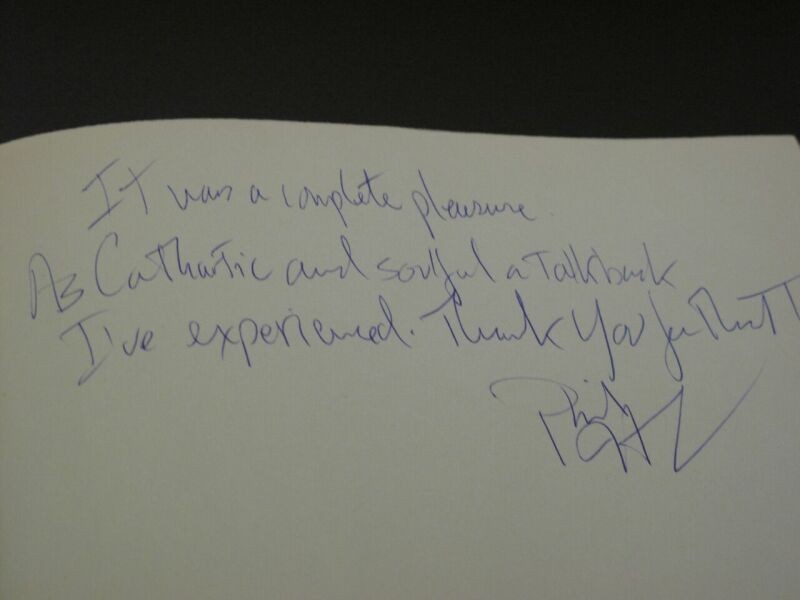 It was a complete pleasure.
As Cathartic and soulful a Talkback
I've experienced. Thank You for that
Phil